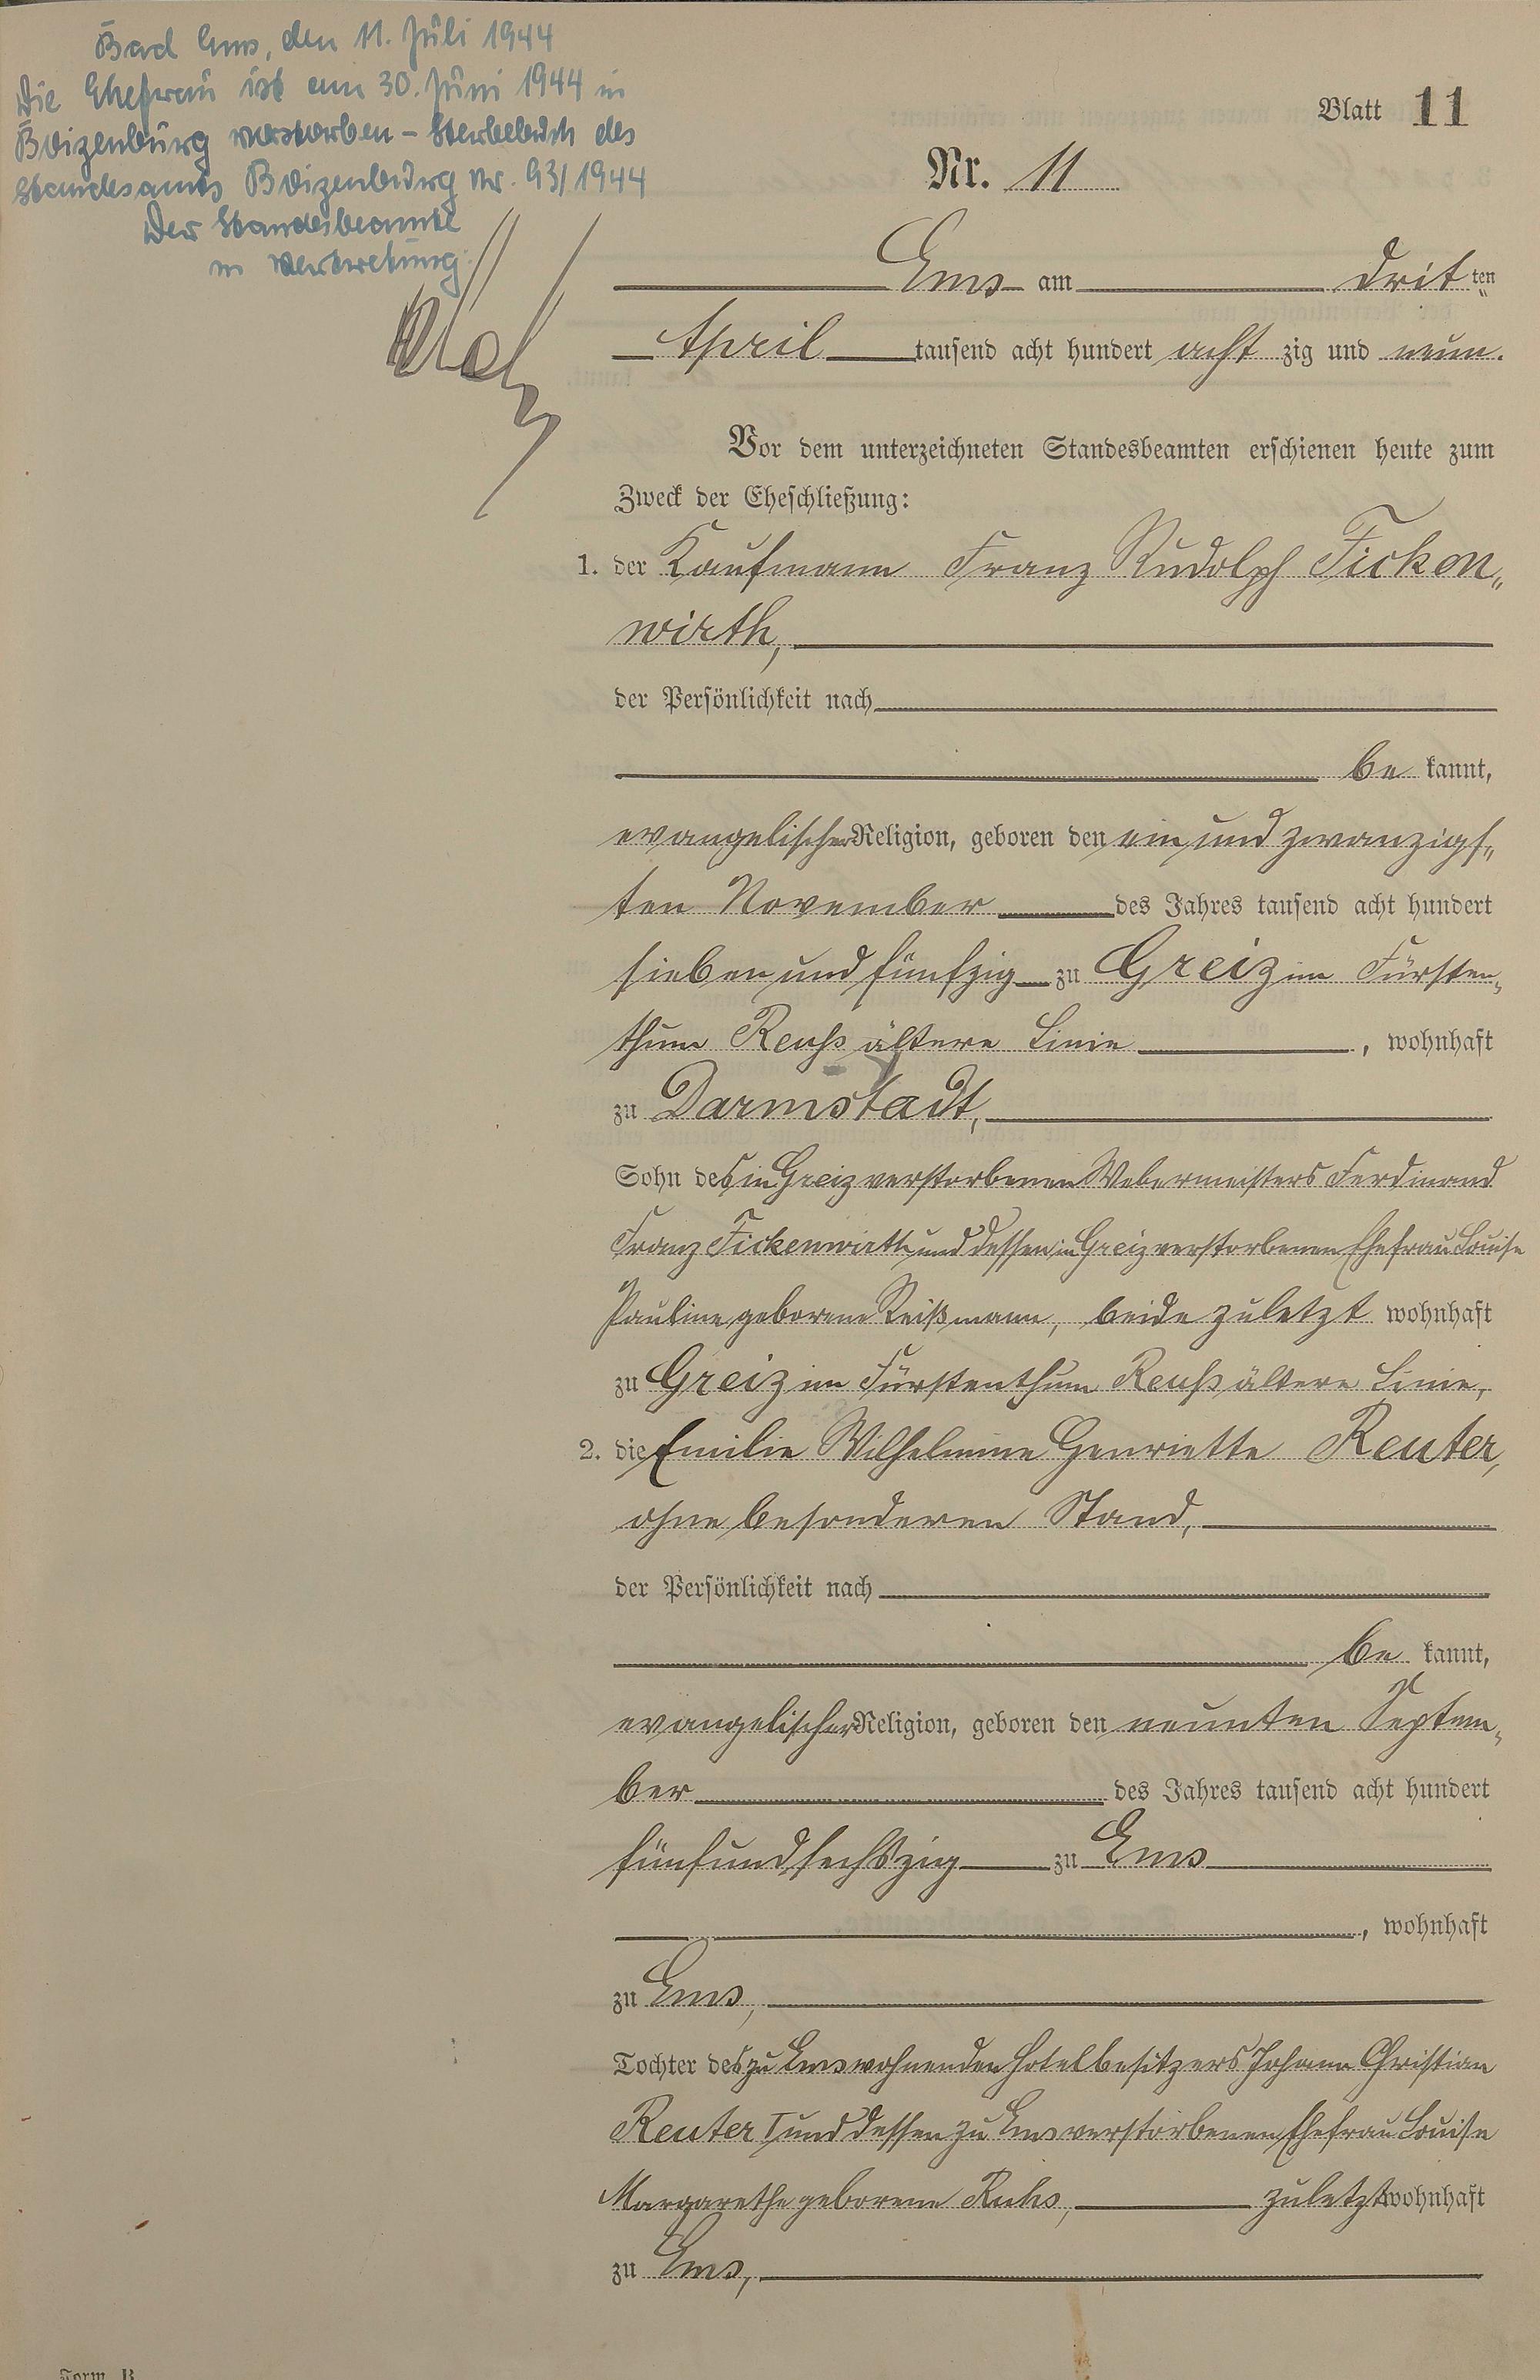 Bad Ems, den 11. Juli 1944
Die Ehefrau ist am 30. Juni 1944 in
Boizenburg verstorben – Sterbebuch des
Standesamts Boizenburg Nr. 93/1944
Der Standesbeamte
in Vertretung:
Blatt 11
Nr. 11
Ems am drit ten
April tausend acht hundert acht zig und neun.
Vor dem unterzeichneten Standesbeamten erschienen heute zum
Zweck der Eheschließung:
1. der Kaufmann Franz Rudolph Ficken„
wirth,
der Persönlichkeit nach
be kannt,
evangelischer Religion, geboren den ein und zwanzigs„
ten November des Jahres tausend acht hundert
sieben und fünfzig zu Greiz im Fürsten„
thum Reuß ältere Linie , wohnhaft
zu Darmstadt,
Sohn des in Greiz verstorbenen Webermeisters Ferdinand
Franz Fickenwirth und dessen in Greiz verstorbenen Ehefrau Louise
Pauline geborene Reißmann, beide zuletzt wohnhaft
zu Greiz im Fürstenthum Reuß ältere Linie,
2. die Emilie Wilhelmine Henriette Reuter,
ohne besonderen Stand,
der Persönlichkeit nach
be kannt,
evangelischer Religion, geboren den neunten Septem„
ber des Jahres tausend acht hundert
fünf und sechszig zu Ems
, wohnhaft
zu Ems,
Tochter des zu Ems wohnenden Hotelbesitzers Johann Christian
Reuter I und dessen zu Ems verstorbenen Ehefrau Louise
Margarethe geborene Ruhs, zuletzt wohnhaft
zu Ems,
Form. B